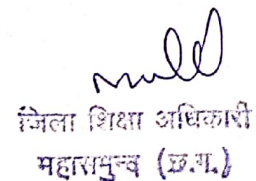 जिला शिक्षा अधिकारी
महासमुन्द (छ.ग.)